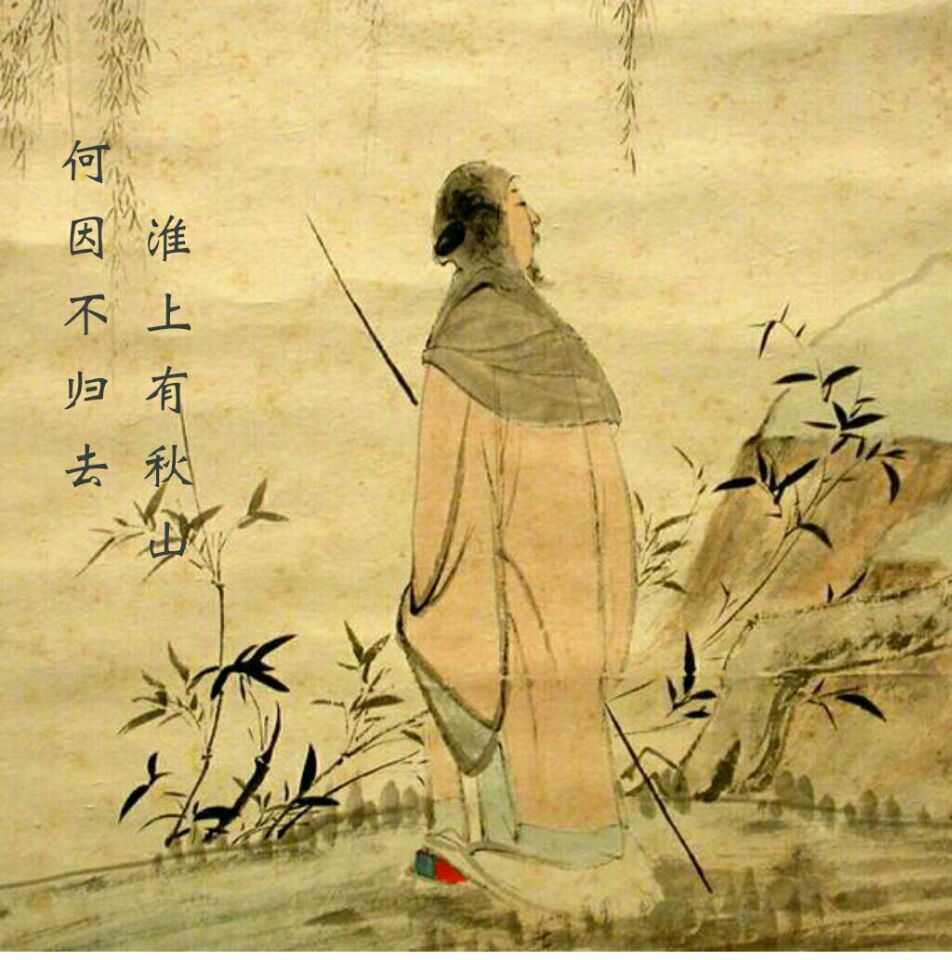 何因不归去
淮上有秋山